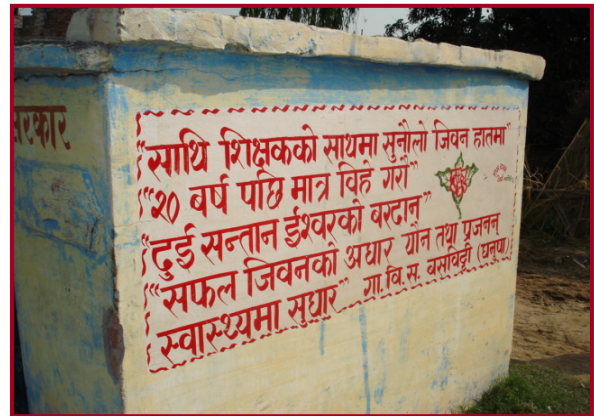 सरकार
"साथि शिक्षकको साथमा सुनौलो जिवन हातमा"
"२० बर्ष पछि मात्र विहे गरौं"
"दुई सन्तान ईश्वरको बरदान"
"सफल जिवनको अधार यौन तथा प्रजनन्
स्वास्थ्यमा सुधार" गा.वि.स. बसविट्टी (धनुषा)